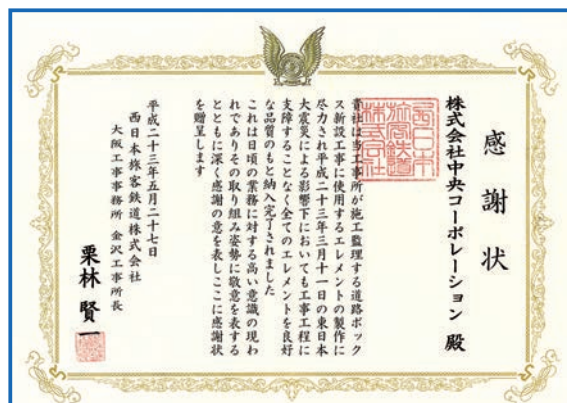 感謝状
株式会社中央コーポレーション 殿
貴社は当工事所が施工監理する道路ボック
ス新設工事に使用するエレメントの製作に
尽力され平成二十三年三月十一日の東日本
大震災による影響下においても工事工程に
支障することなく全てのエレメントを良好
な品質のもと納入完了されました
これは日頃の業務に対する高い意識の現わ
れでありその取り組み姿勢に敬意を表する
とともに深く感謝の意を表しここに感謝状
を贈呈します
平成二十三年五月二十七日
西日本旅客鉄道株式会社
大阪工事事務所 金沢工事所長
栗林 賢一
西日本
旅客鉄道
株式会社